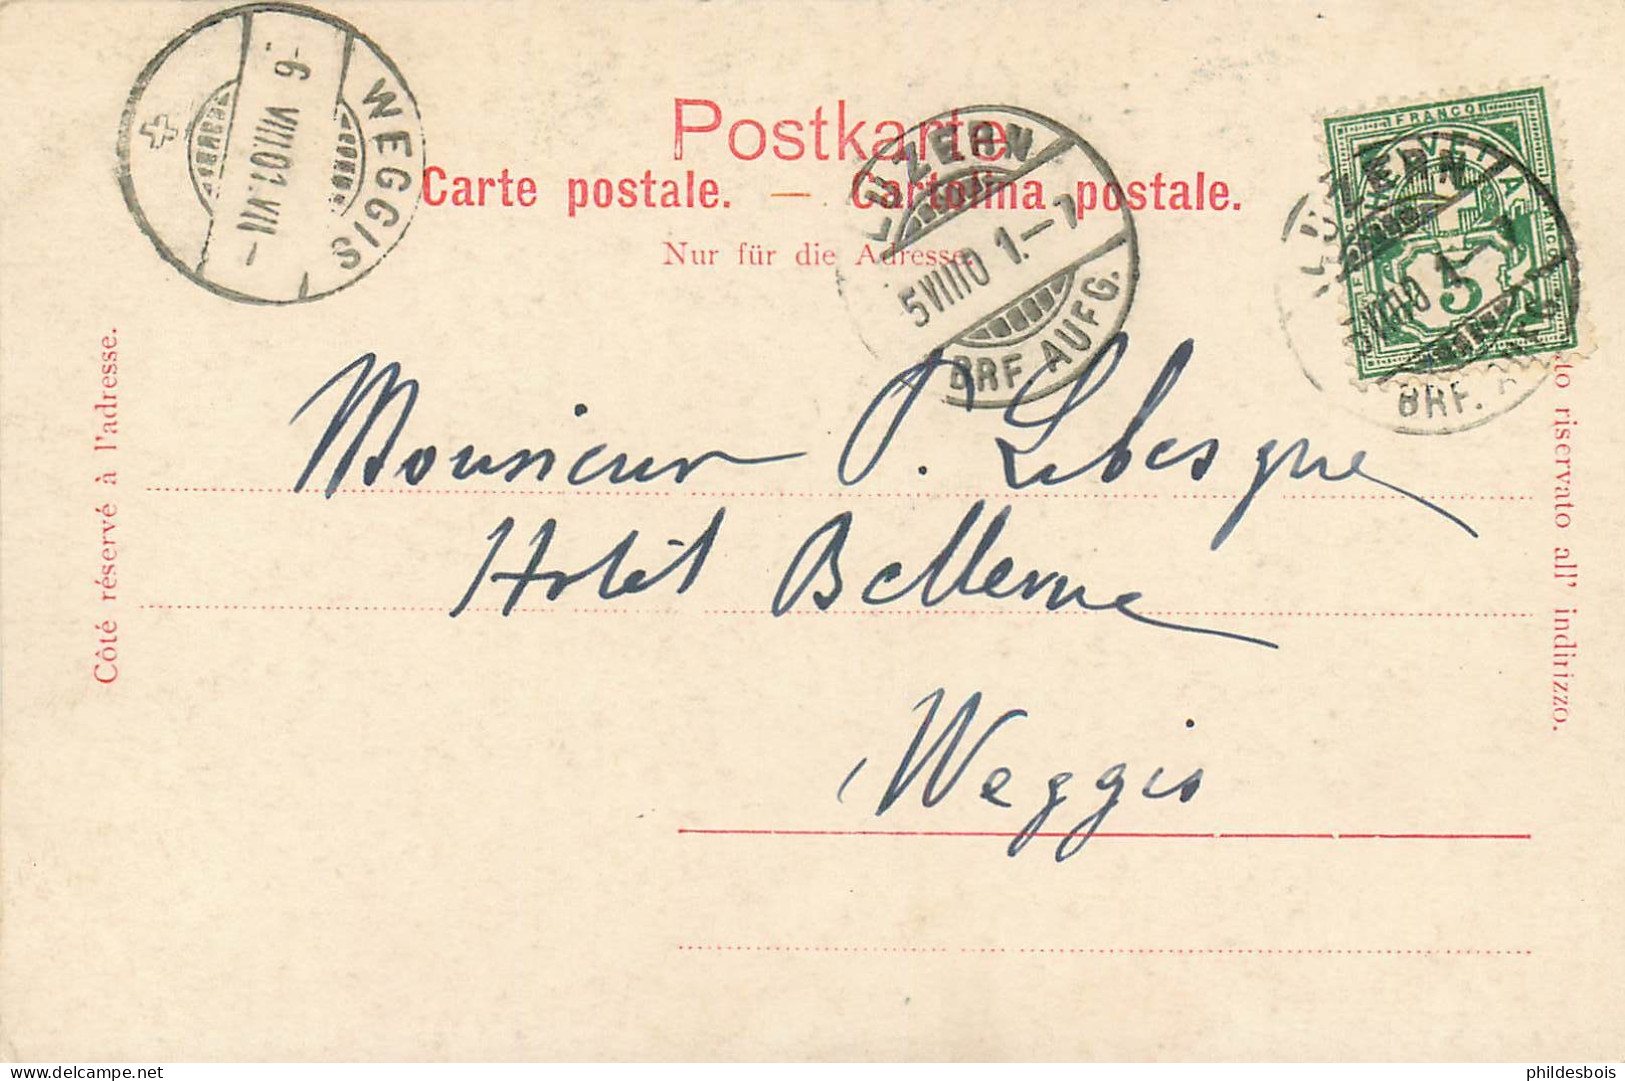 WEGGIS
-6 VIII.01.VII-
Postkarte
Carte postale. — Cartolina postale.
Nur für die Adresse.
LUZERN
5 VIII 01.-7
BRF. AUFG.
FRANCO
HELVETIA
5
LUZERN
5 VIII 01.-7
BRF.
Côté réservé à l'adresse.
riservato all' indirizzo.
Monsieur P. Lebesgue
Hotêl Bellevue
Weggis
www.delcampe.net
phildesbois